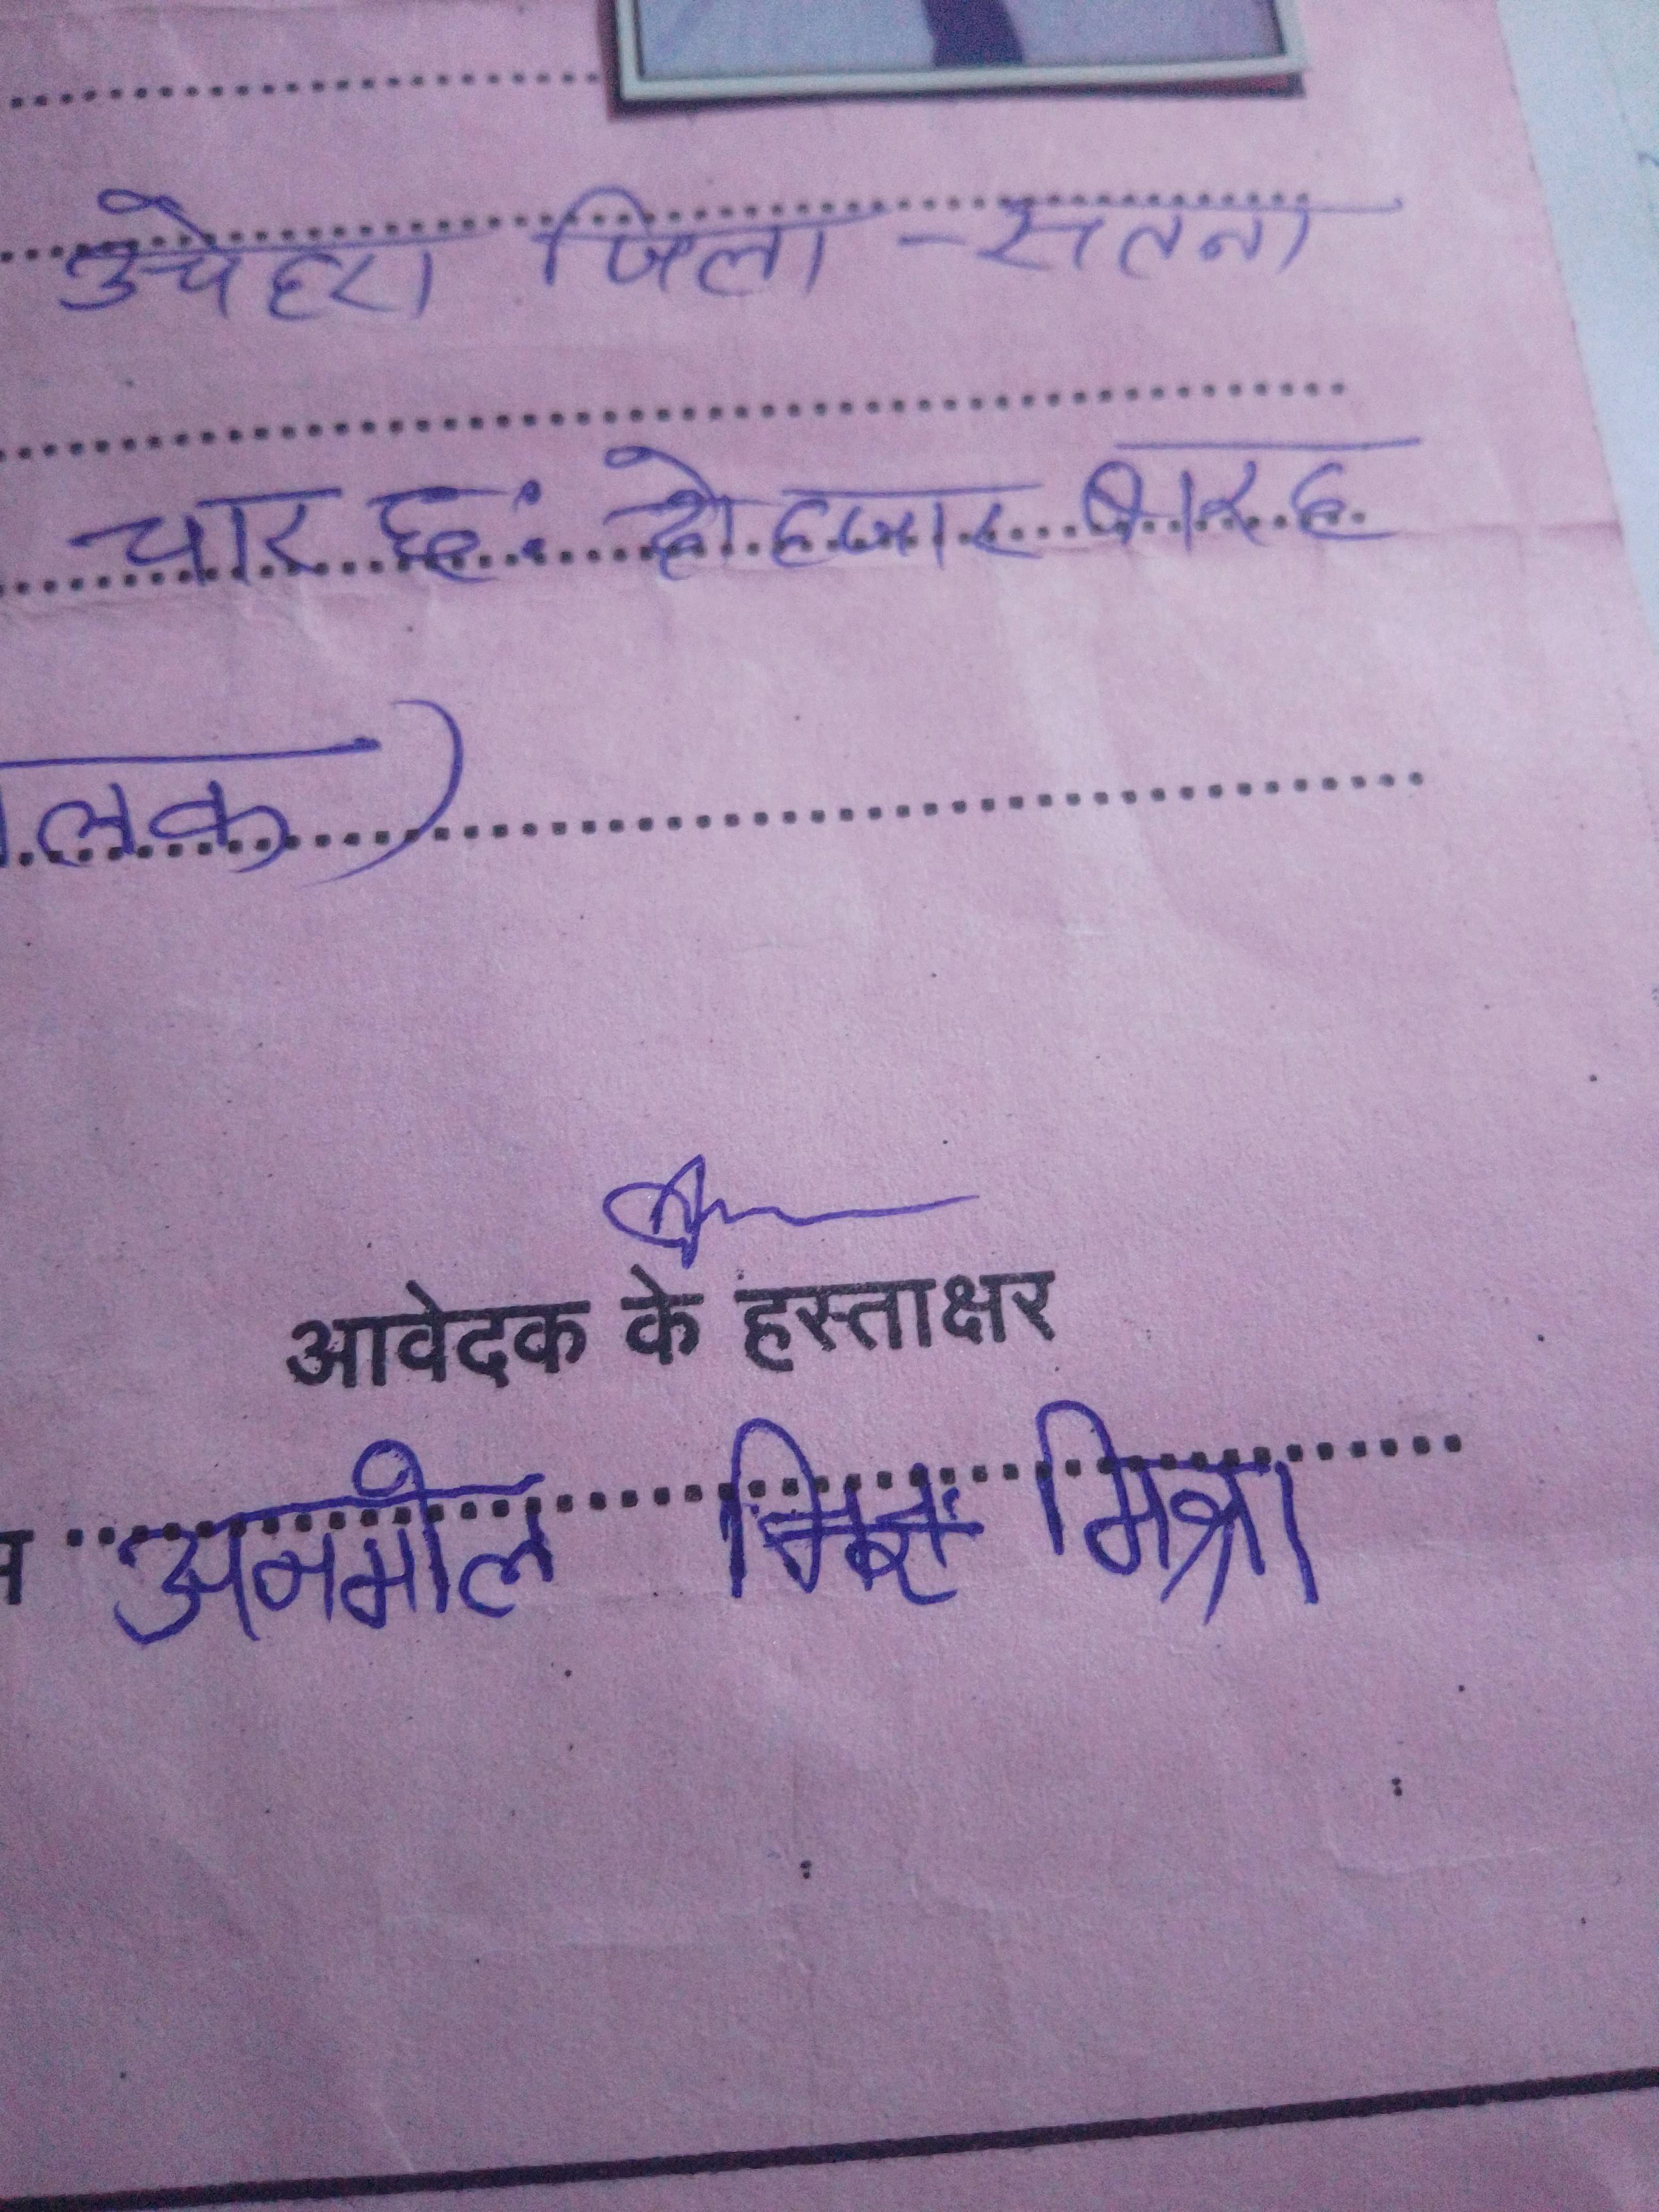 उचेहरा जिला - सतना
चार छः दो हजार बारह
लक)
आवेदक के हस्ताक्षर
अनमोल मिश्रा